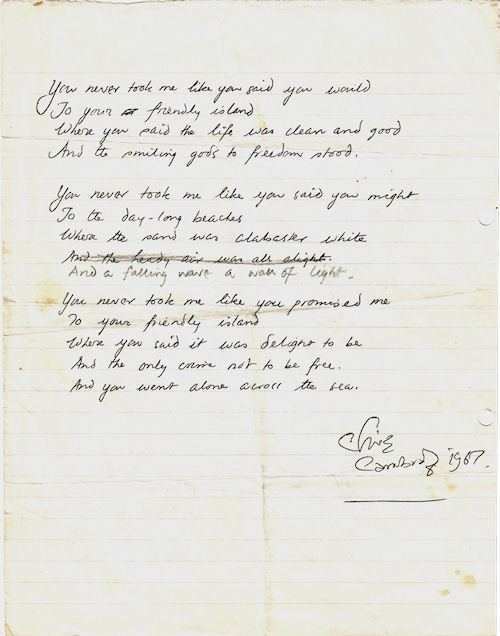 You never took me like you said you would
To your friendly island
Where you said the life was clean and good
And the smiling gods to freedom stood.
You never took me like you said you might
To the day-long beaches
Where the sand was alabaster white
And the heady air was all alight.
And a falling wave a wall of light.
You never took me like you promised me
To your friendly island
Where you said it was delight to be
And the only crime not to be free.
And you went alone across the sea.
Clive
Cambridge 1967.